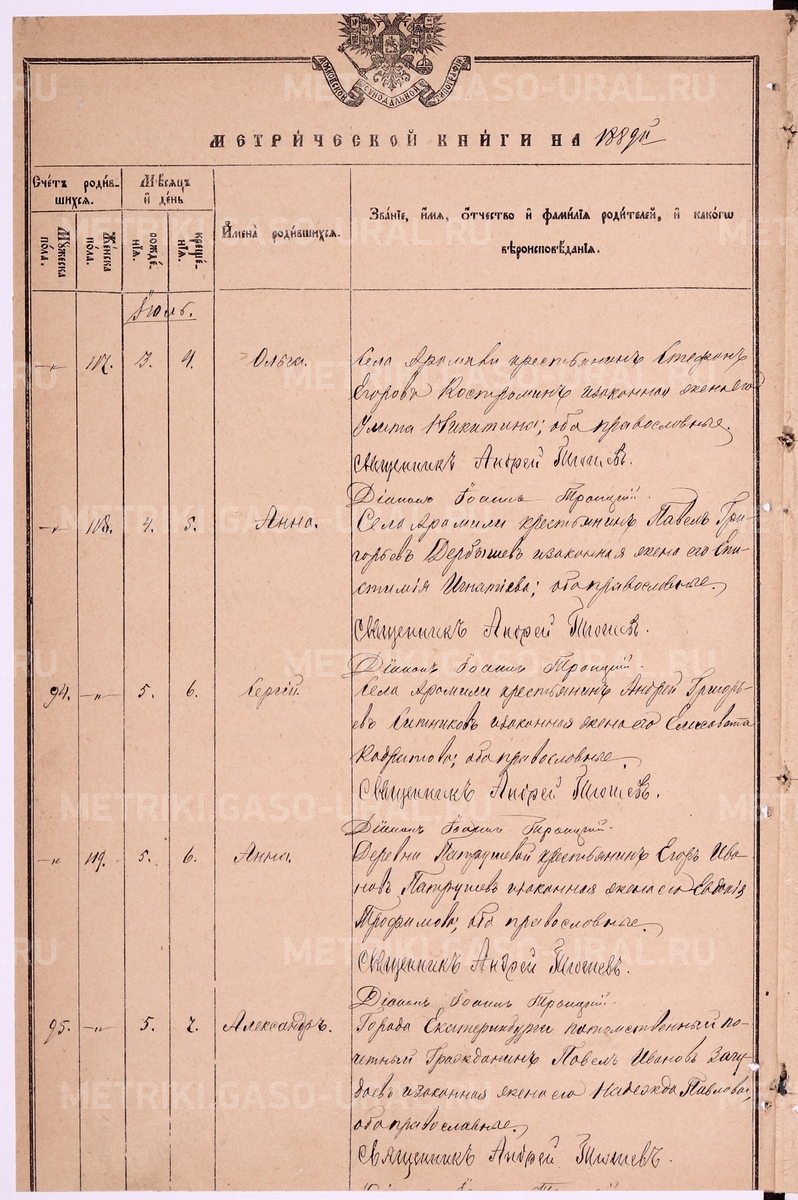 МОСКОВСКОЙ СѴНОДАЛЬНОЙ ТИПОГРАФІИ
МЕТРИ́ЧЕСКОЙ КНИ́ГИ НА 1889й
Сче́тъ роди́в-
шихся.
Мѣ́сяцъ
и҆ де́нь
И҆мена̀ роди́вшихся.
Зва́ніе, и҆́мя, о҆́тчество и҆ фами́лія роди́телей, и҆ како́гѡ
вѣроисповѣ́данія.
Мꙋ́жеска
по́ла.
Же́нска
по́ла.
рожде́-
нія.
креще́-
нія.
Іюль.
—"— 107. 3. 4. Ольга. Села Арамили крестьянинъ Стефанъ
Егоровъ Костроминъ и законная жена его
Улита Никитина; оба православные.
Священникъ Андрей
Діаконъ Іоаннъ Троицкій.
—"— 108. 4. 5. Анна. Села Арамили крестьянинъ Павелъ Гри-
горьевъ Дербышевъ и законная жена его Епи-
стимія Игнатіева; оба православные.
Священникъ Андрей
Діаконъ Іоаннъ Троицкій.
94. —"— 5. 6. Сергій. Села Арамили крестьянинъ Андрей Григорь-
евъ Ситниковъ и законная жена его Елисавета
оба православные.
Священникъ Андрей
Діаконъ Іоаннъ Троицкій.
—"— 109. 5. 6. Анна. Деревни Патрушевой крестьянинъ Егоръ Ива-
новъ Патрушевъ и законная жена его Евдокія
Трофимова; оба православные.
Священникъ Андрей
Діаконъ Іоаннъ Троицкій.
95. —"— 5. 7. Александръ. Города Екатеринбурга потомственный по-
четный Гражданинъ Павелъ Ивановъ
и законная жена его Надежда Павлова;
оба православные.
Священникъ Андрей
METRIKI.GASO-URAL.RU